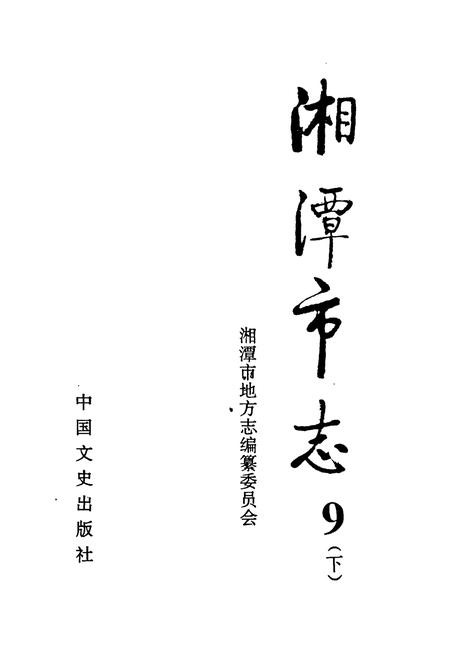 湘潭市志
9
(下)
湘潭市地方志编纂委员会
中国文史出版社